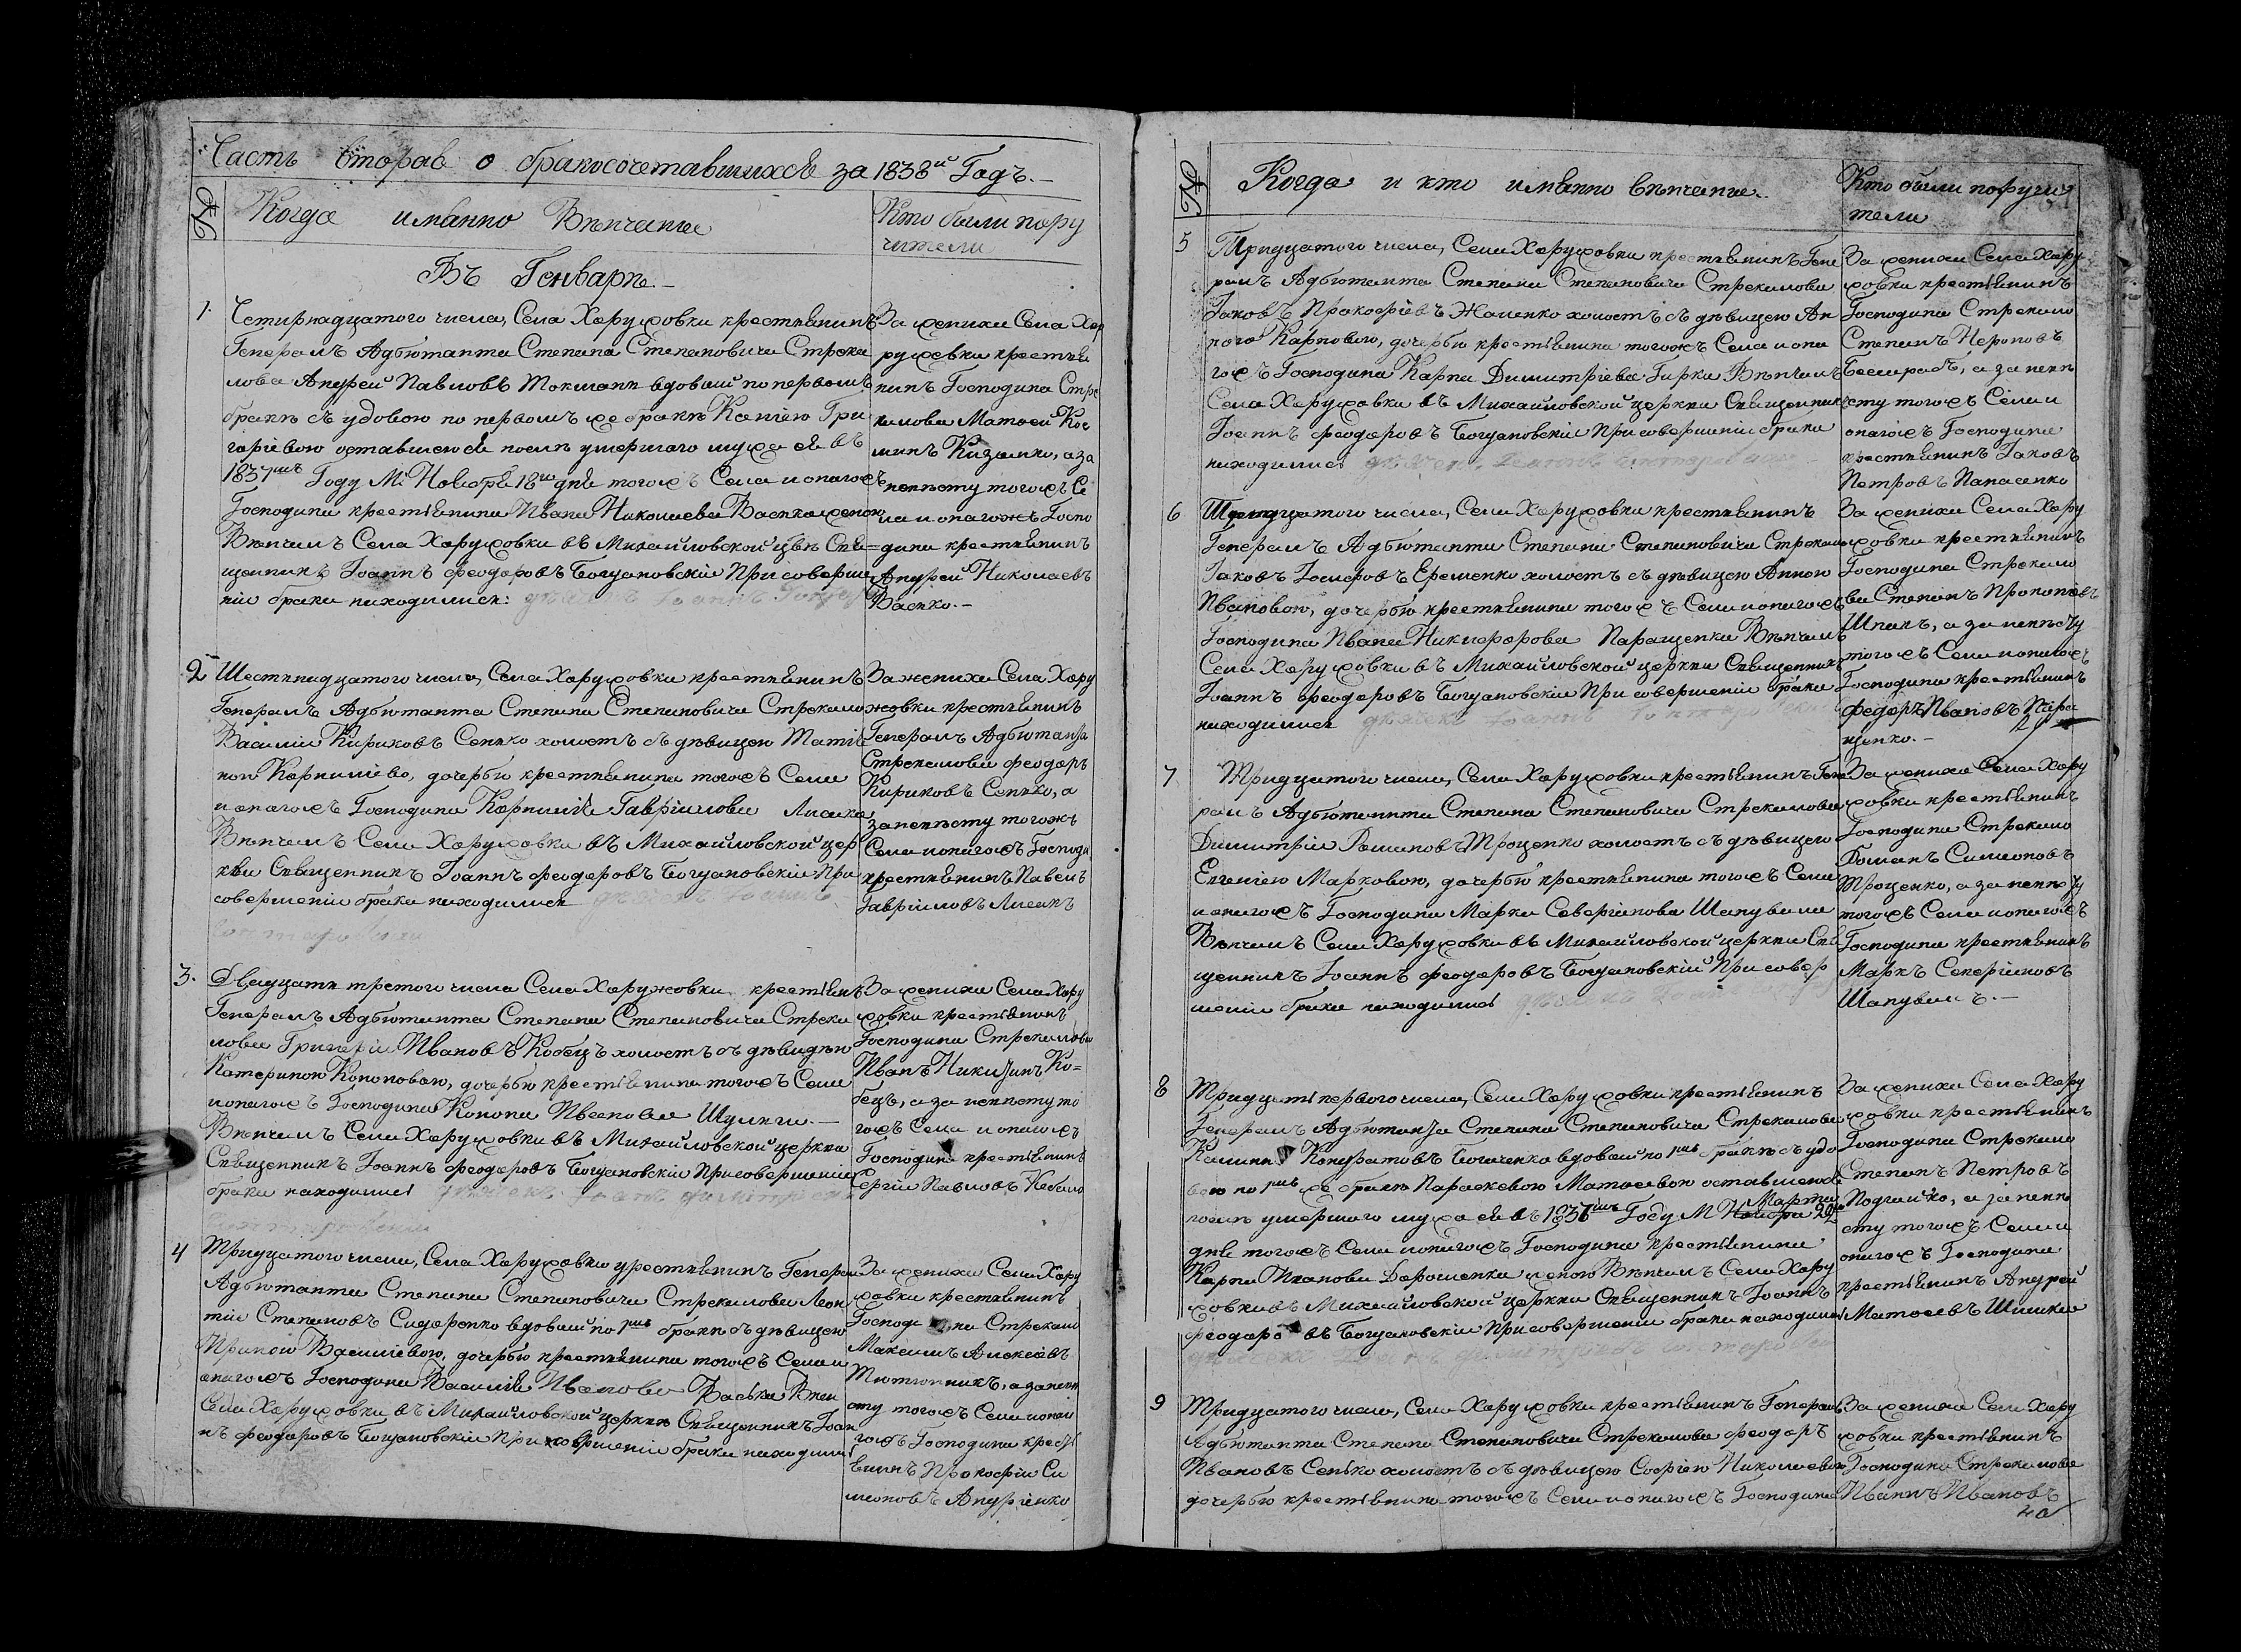 Часть вторая о бракосочетавшихся за 1838й Годъ.
№
Когда имянно Вѣнчаные
Кто были пору
чители
Въ Генварѣ.
1.
Четирнадцатого числа, Села Харужовки крестянинъ
Генералъ Адьютанта Степана Степановича Стрека
лова Андрей Павловъ Токмань вдовый по первомъ
бракѣ съ удовою по первомъ же бракѣ Ксенією Гри
горієвою оставшеюся послѣ умершаго мужа ея въ
1837мъ Году М. Ноября 18го дня тогожъ Села и онагожъ
Господина крестянина Ивана Николаева
Вѣнчалъ Села Харужовки въ Михайловской цркѣ Свя=
щенникъ Іоаннъ Феодоровъ Богдановскій При соверше
ніи брака находились:
За жениха Села Ха
ружовки крестья
нинъ Господина Стре
калова Матвей Кос
минъ Кизимко, а за
невѣсту тогожъ Се
ла и онагожъ Госпо
дина крестянинъ
Андрей Николаевъ
Васько.
2
Шестнадцатого числа, Села Харужовки крестянинъ
Генералъ Адьютанта Степана Степановича Стрекало
Василій Кириковъ Сенько холостъ съ дѣвицею Матія
ною Корнилієво, дочерью крестянина тогожъ Села
и онагожъ Господина Корнилія Гавріилова Лисака
Вѣнчалъ Села Харужовки въ Михайловской цер
кви Священникъ Іоаннъ Феодоровъ Богдановскій При
совершеніи брака находились
За жениха Села Хару
жовки крестянинъ
Генералъ Адьютанта
Стрекалова Феодоръ
Кириковъ Сенько, а
за невѣсту тогожъ
Села и онагожъ Господи
крестянинъ Павелъ
Гавріиловъ Лисакъ
3.
Двадцать третого числа Села Харужовки крестянъ
Генералъ Адьютанта Степана Степановича Стрека
лова Григорій Ивановъ Кобецъ холостъ съ дѣвицею
Катериною Кононовою, дочерью крестянина тогожъ Села
и онагожъ Господина Конона Иванова Шулики.
Вѣнчалъ Села Харужовки въ Михайловской церкви
Священникъ Іоаннъ Феодоровъ Богдановскій При совершеніи
брака находились
За жениха Села Хару
жовки крестянинъ
Господина Стрекалова
Иванъ Никитинъ Ко=
бецъ, а за невѣсту то
гожъ Села и онагожъ
Господина крестянинъ
Сергій Павловъ
4
Тридцатого числа, Села Харужовки урестянинъ Генерал
Адьютанта Степана Степановича Стрекалова Леон
тій Степановъ Сидоренко вдовый по 1мъ бракѣ съ дѣвицею
Ириною Василієвою, дочерью крестянина тогожъ Села и
онагожъ Господина Василія Иванова Васька Вѣнч
Села Харужовки въ Михайловской церкви Священникъ Іоан
нъ Феодоровъ Богдановскій При совершеніи брака находились
За жениха Села Хару
жовки крестянинъ
Господина Стрекало
Максимъ Алексѣевъ
Тютюнникъ, а за невѣ
сту тогожъ Села и она
гожъ Господина крест
янинъ Прокофій Си
меоновъ Андрієнко
№
Когда и кто имянно вѣнчаные.
Кто были поручи
тели
5
Тридцатого числа, Села Харужовки крестянинъ Гене
ралъ Адьютанта Степана Степановича Стрекалова
Іаковъ Прокофієвъ Жаленко холостъ съ дѣвицею Ан
ною Карповою, дочерью крестянина тогожъ Села и она
гожъ Господина Карпа Димитрієва Гирка Вѣнчалъ
Села Харужовки въ Михайловской церкви Священникъ
Іоаннъ Феодоровъ Богдановскій При совершеніи брака
находились
За жениха Села Хару
жовки крестянинъ
Господина Стрекало
Степанъ Нероновъ
а за невѣ
сту тогожъ Села и
онагожъ Господина
крестянинъ Іаковъ
Петровъ Панасенко
6
числа, Села Харужовки крестянинъ
Генералъ Адьютанта Степана Степановича Стрекало
Іаковъ Еременко холостъ съ дѣвицею Анною
Ивановою, дочерью крестянина тогожъ Села и онагожъ
Господина Ивана Никифорова Паращенка Вѣнчалъ
Села Харужовки въ Михайловской церкви Священникъ
Іоаннъ Феодоровъ Богдановскій При совершеніи брака
находились
За жениха Села Хару
жовки крестянинъ
Господина Стрекало
ва Степанъ Прокопієвъ
Шпакъ, а за невѣсту
тогожъ Села и онагожъ
Господина крестянинъ
Федоръ Ивановъ Пара
щенко.
7
Тридцатого числа, Села Харужовки крестянинъ Гене
ралъ Адьютанта Степана Степановича Стрекалова
Димитрій Романовъ Троценко холостъ съ дѣвицею
Евгенією Марковою, дочерью крестянина тогожъ Села
и онагожъ Господина Марка Северіанова Шаповала
Вѣнчалъ Села Харужовки въ Михайловской церкви Свя
щенникъ Іоаннъ Феодоровъ Богдановскій При совер
шеніи брака находились
За жениха Села Хару
жовки крестянинъ
Господина Стрекало
Симеоновъ
Троценко, а за невѣсту
тогожъ Села и онагожъ
Господина крестянинъ
Маркъ Северіановъ
Шаповалъ.
8
Тридцать первого числа, Села Харужовки крестянинъ
Генералъ Адьютанта Степана Степановича Стрекалова
Калинъ Кондратовъ Богаченко вдовый по 1мъ бракѣ съ удо
вою по 1мъ же бракѣ Параскевою Матвеевою оставшеюся
послѣ умершаго мужа ея въ 1837мъ Году М Ноября Марта 22
дня тогожъ Села и онагожъ Господина крестянина
Карпа Иванова Дорошенка женою Вѣнчалъ Села Хару
жовки въ Михайловской церкви Священникъ Іоаннъ
Феодоровъ Богдановскій При совершеніи брака находились
За жениха Села Хару
жовки крестянинъ
Господина Стрекало
Степанъ Петровъ
а за невѣ
сту тогожъ Села и
онагожъ Господина
крестянинъ Андрей
Матвеевъ Шишка
9
Тридцатого числа, Села Харужовки крестянинъ Генералъ
Адьютанта Степана Степановича Стрекалова Феодоръ
Ивановъ Сенько холостъ съ дѣвицею Софією Николаевою
дочерью крестянина тогожъ Села и онагожъ Господина
За жениха Села Хару
жовки крестянинъ
Господина Стрекалова
Иванъ Ивановъ